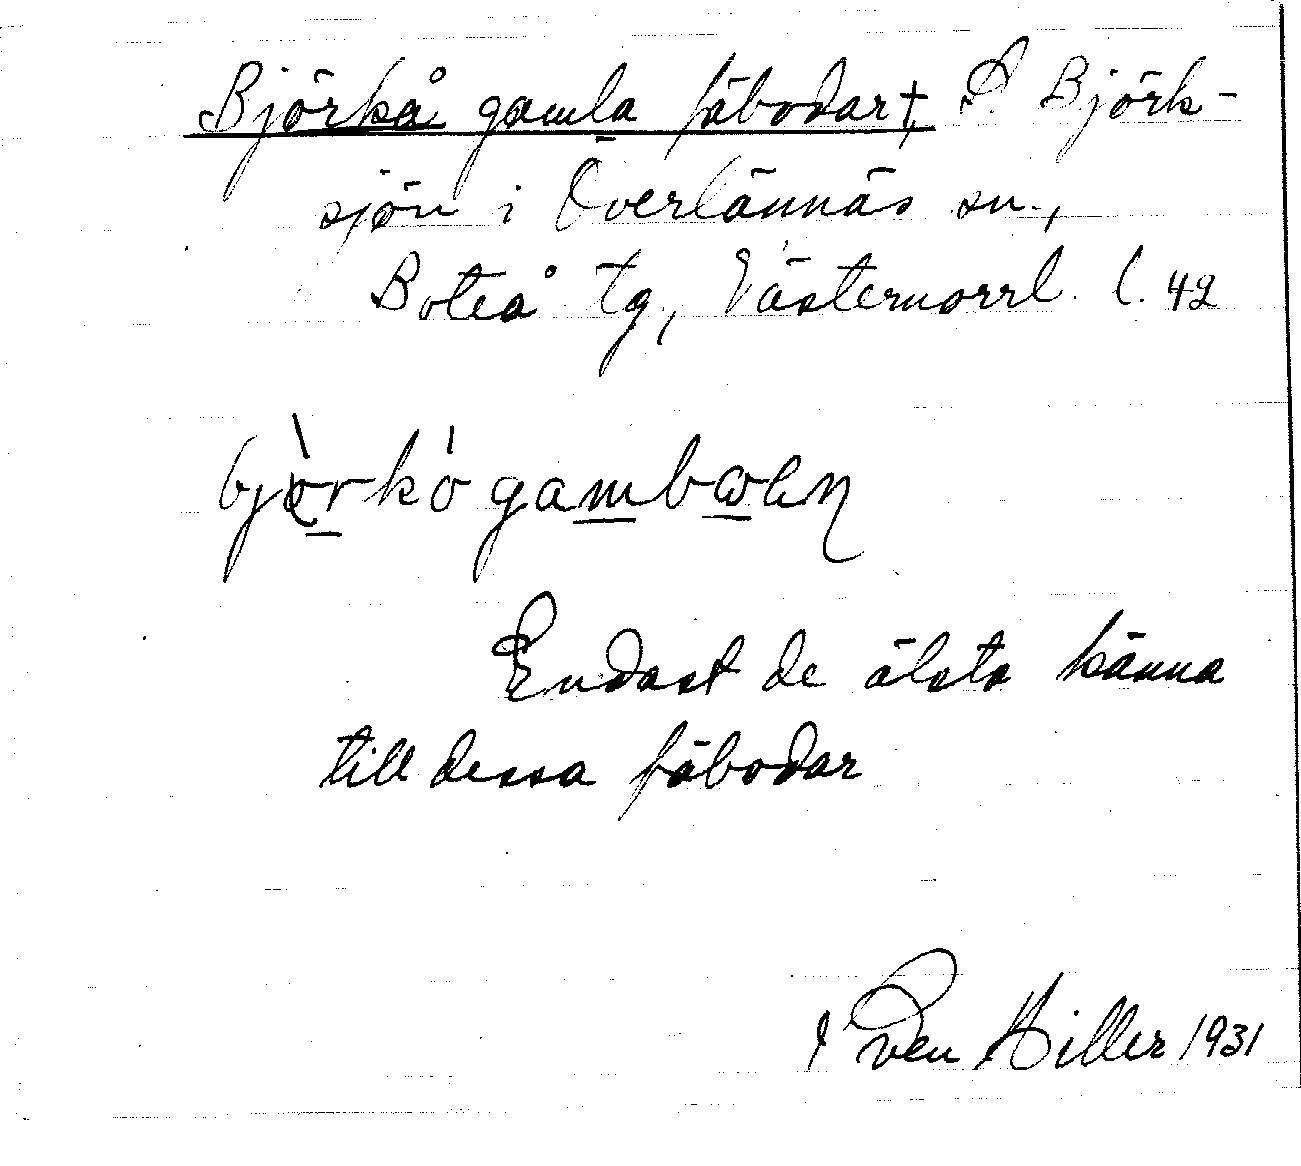 Björkå gamla fäbodar †, S. Björk-
sjön i Överlännäs sn.,
Boteå tg, Västernorrl. l. 42
Endast de älsta känna
till dessa fäbodar
Sven Hiller 1931